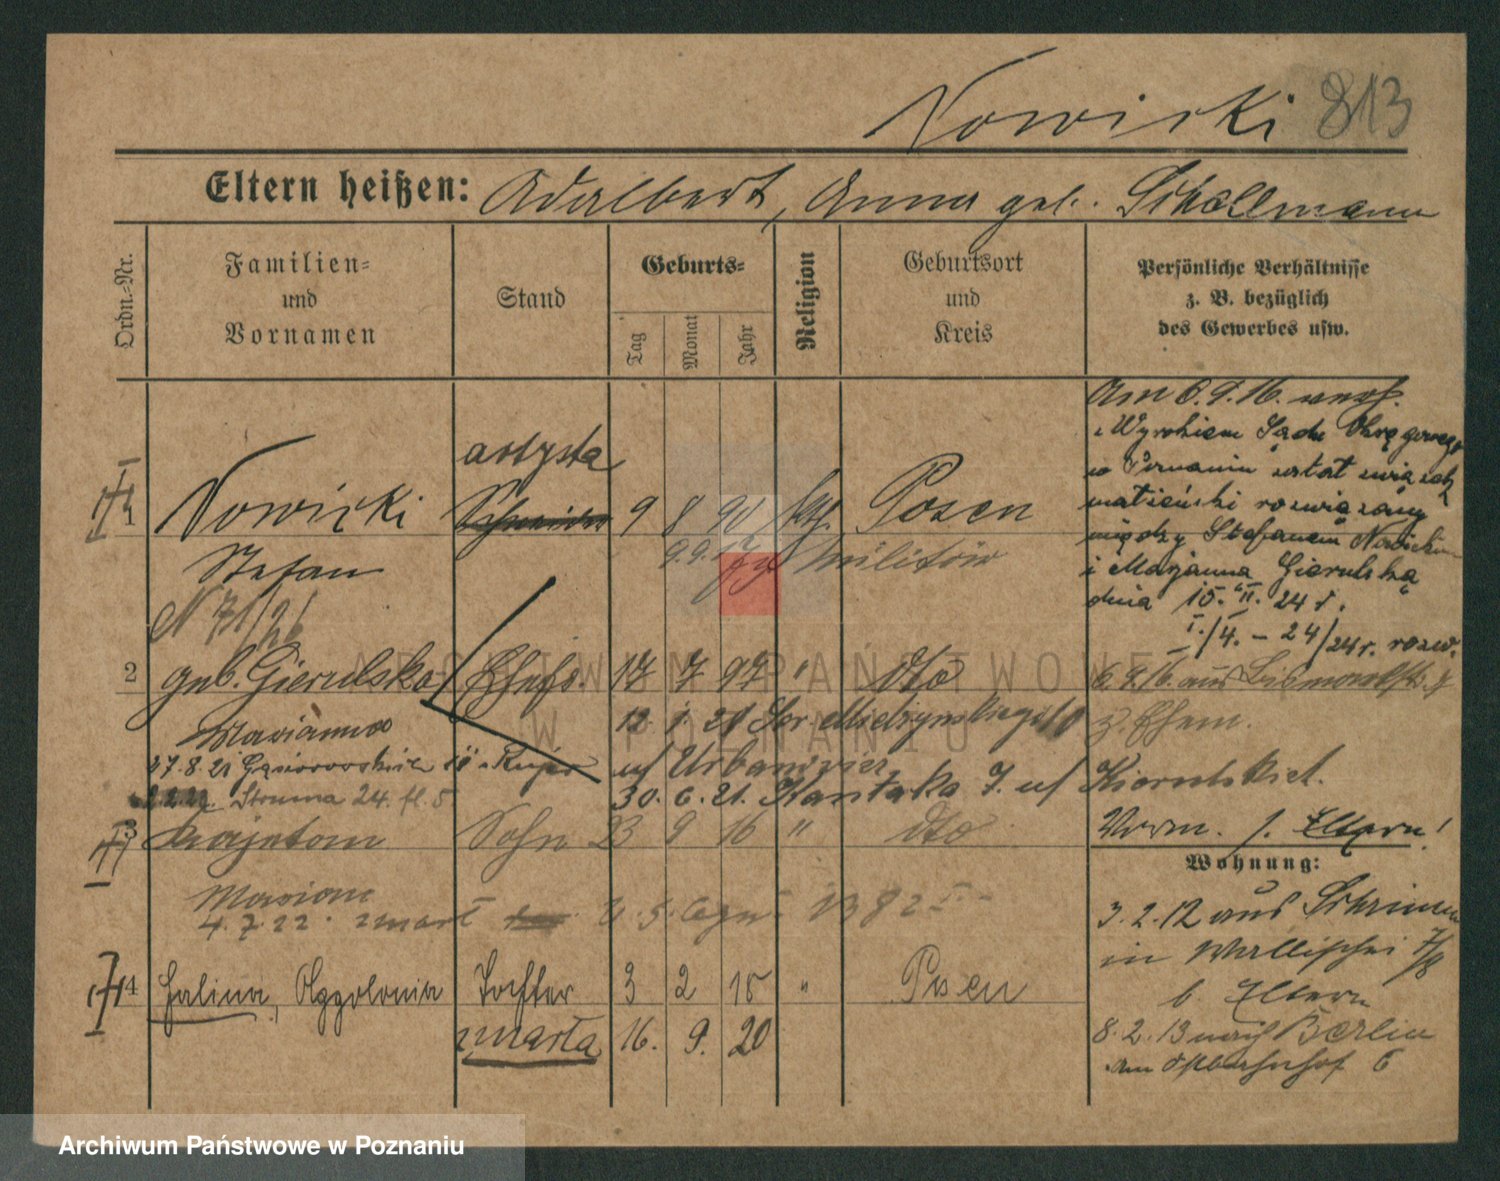 Nowicki 813
Eltern heißen: Adalbert, Anna geb. Schollmann
Ordn.-Nr.
Familien-
und
Vornamen
Stand
Geburts-
Tag
Monat
Jahr
Religion
Geburtsort
und
Kreis
Persönliche Verhältnisse
z. B. bezüglich
des Gewerbes usw.
Am 6.9.16. verh.
Wyrokiem Sądu Okręgowego
w Poznaniu został związek
małżeński rozwiązany
między Stefanem Nowickim
i Marjanną Gierulską
dnia 15. II. 24 r.
I./4. – 24/24 r. rozw.
artysta
1 Nowicki Schneider 9 8 91 kth. Posen
Stefan 9.9. Militär
N 71/26
2 geb. Gierulska Ehefr. 17 7 97 " dto
6.9.16. aus Bismarckstr. 7
z. Ehem.
Marianna
12. 1. 21
27.8.21 u/ Urbanowicz
Struma 24. fl. 5
30. 6. 21. Kantaka 7. u/ Kierulskiet.
3 Kajetan Sohn 23 9 16 " dto
Vorm. s. Eltern!
Marian
4.7.22. zmarł
Wohnung:
3.2.12 aus Schrimm
in Wallischei 7/8
b. Eltern
8.2.13 nach Berlin
am Ostbahnhof 6
4 Halina, Apolonia Tochter 3 2 18 " Posen
zmarła 16. 9. 20
ARCHIWUM PAŃSTWOWE
W POZNANIU
Archiwum Państwowe w Poznaniu